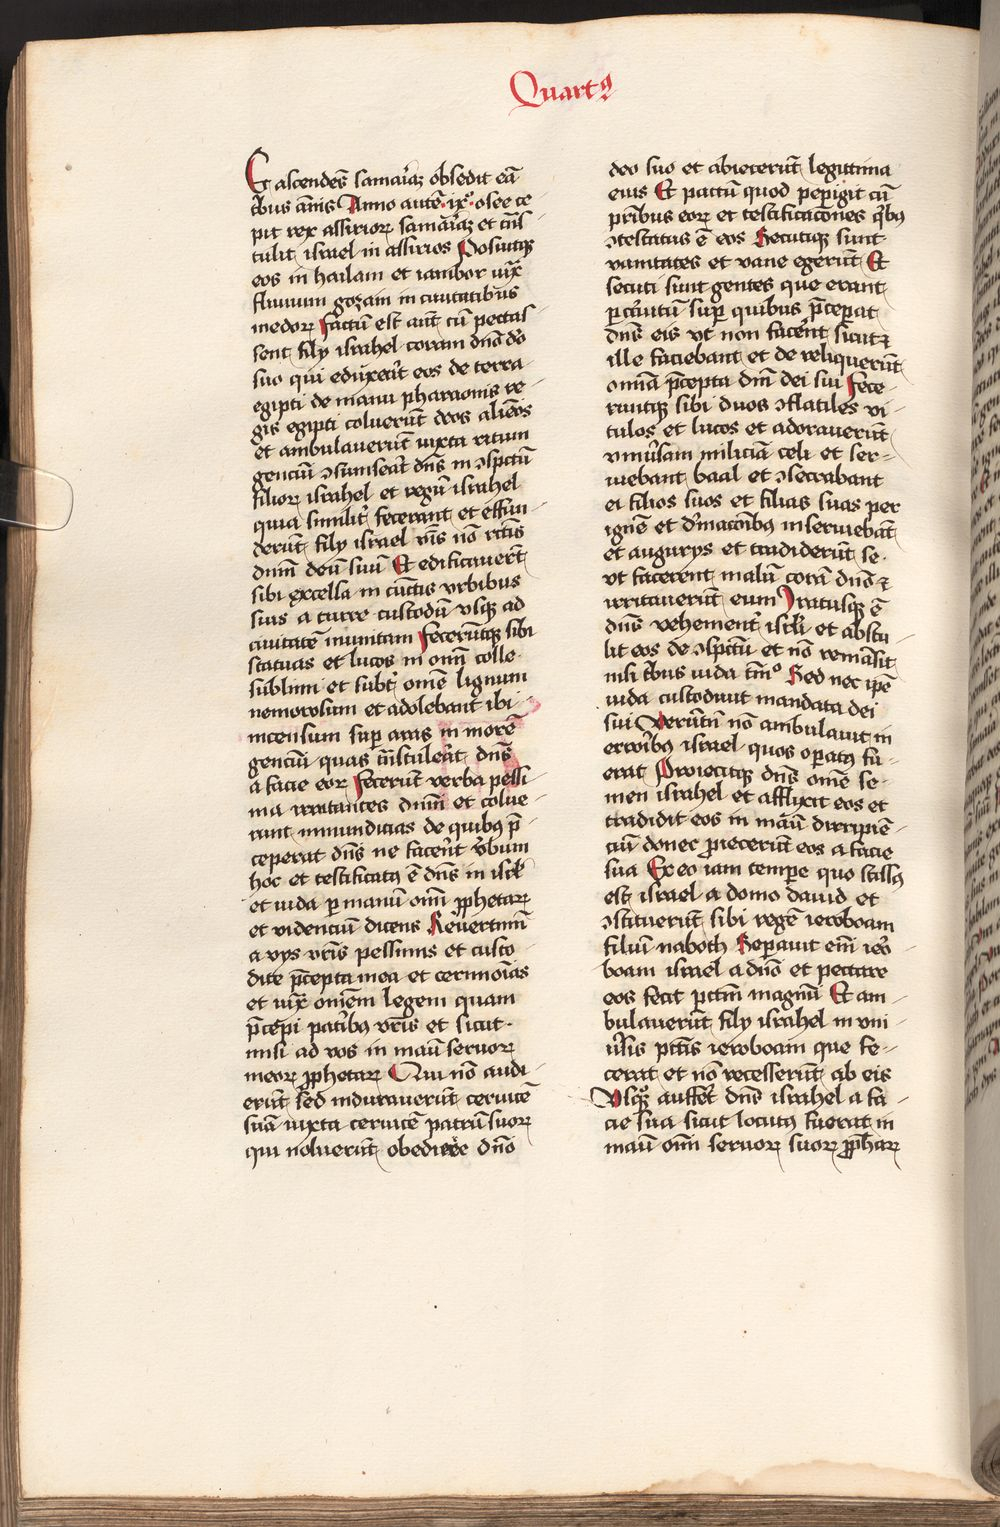 Quartꝯ
Et ascendens̄ samariāꝫ obsedit eā
tͥbus ānis Anno autē ·ixº· osee ce
pit rex assirioꝝ samariāꝫ et tn̄s
tulit israel in assirios Posuitqꝫ
eos in hailam et iambor iux̄
fluuium gozam in ciuitatibus
medoꝝ Factū est aut̄ cū peccas
sent filÿ israhel coram dn̄o do̅
suo qui eduxer̄t eos de terra
egipti de manu pharaonis re
gis egipti coluerūt deos aliēos
et ambulauerūt iuxta ritum
genciū ꝯsumseāt dn̄s in ꝯspc̄tū
filioꝝ israhel et regū israhel
quia simili̅t fecerant et offen
derūt filÿ israel v̄is nō rc̄tis
dn̄m deū suū Et edificauerūt
sibi excelsa in cūctis vrbibus
suis a turre custodū vsqꝫ ad
ciuitatē munitam Fecerūtqꝫ sibi
statuas et lucos in om̄i colle
sublimi et subt̄ om̄e lignum
nemorosum et adolebant ibi
incensum suꝑ aras in morē
genciū quas tn̄stuleāt dn̄s
a facie eoꝝ Fecerūt verba pessi
ma irritantes dn̄m et colue
runt inmundicias de quibꝯ p̄
ceperat dn̄s ne facer̄t v̄bum
hoc et testificatꝯ ē dn̄s in isrł
et iuda ꝑ manū om̄i ꝓphetaꝝ
et videnciū dicens Reuertimī
a vÿs vr̄is pessimis et custo
dite p̄cepta mea et cerimoīas
et iux̄ om̄em legem quam
p̄cepi patͥbus vr̄is et sicut
misi ad vos in maū seruoꝝ
meoꝝ ꝓphetaꝝ Qui nō audi
erūt sed indurauerūt ceruicē
suā iuxta ceruicē patrū suoꝝ
qui noluerūt obedire dn̄o
deo suo et abiecerūt legittima
eius Et pactū quod pepigit cū
pr̄ibus eoꝝ et testificac̄ones qͥbꝯ
ꝯtestatus ē eos Secutiqꝫ sunt
vanitates et vane egerūt Et
secuti sunt gentes que erant
ꝑ cͥcuitū suꝑ quibus p̄ceperat
dn̄s eis vt non facer̄t sicut ⁊
ille faciebant et de reliquerūt
omīa p̄cepta dn̄i dei sui Fece
runtqꝫ sibi duos ꝯflatiles vi
tulos et lucos et adorauerūt
vniu̅sam miliciā celi et ser
uiebant baal et ꝯsecrabant
ei filios suos et filias suas per
ignē et dīnacōibꝯ inseruiebāt
et augurÿs et tradiderūt se
vt facerent malū corā dn̄o ⁊
irritauerūt eum Iratusqꝫ ē
dn̄s vehement̄ isrłi et abstu
lit eos de ꝯspc̄tū et nō remāsit
nisi tͥbus iuda tm̄º Sed nec ip̄e
iuda custodiuit mandata dei
sui Verūtn̄ nō ambulauit in
erroͥbꝯ israel quos oꝑatꝯ fu
erat Proiecitqꝫ dn̄s om̄e se
men israhel et afflixit eos et
tradidit eos in maū diripiē
ciū donec ꝓiecerūt eos a facie
sua Ex eo iam tempore quo scissꝯ
est israel a domo dauid et
ꝯstituerūt sibi regē ieroboam
filiū naboth Seperauit em̄ iero
boam israel a dn̄o et peccare
eos fecit pctm̄ magnū Et am
bulauerūt filÿ israhel in vni
u̅sis pctīs ieroboam que fe
cerat et nō recesserūt ab eis
Vsqꝫ auffer̄t dn̄s israhel a fa
cie sua sicut locutꝯ fuerat in
maū om̄i seruoꝝ suoꝝ ꝓphaꝝ